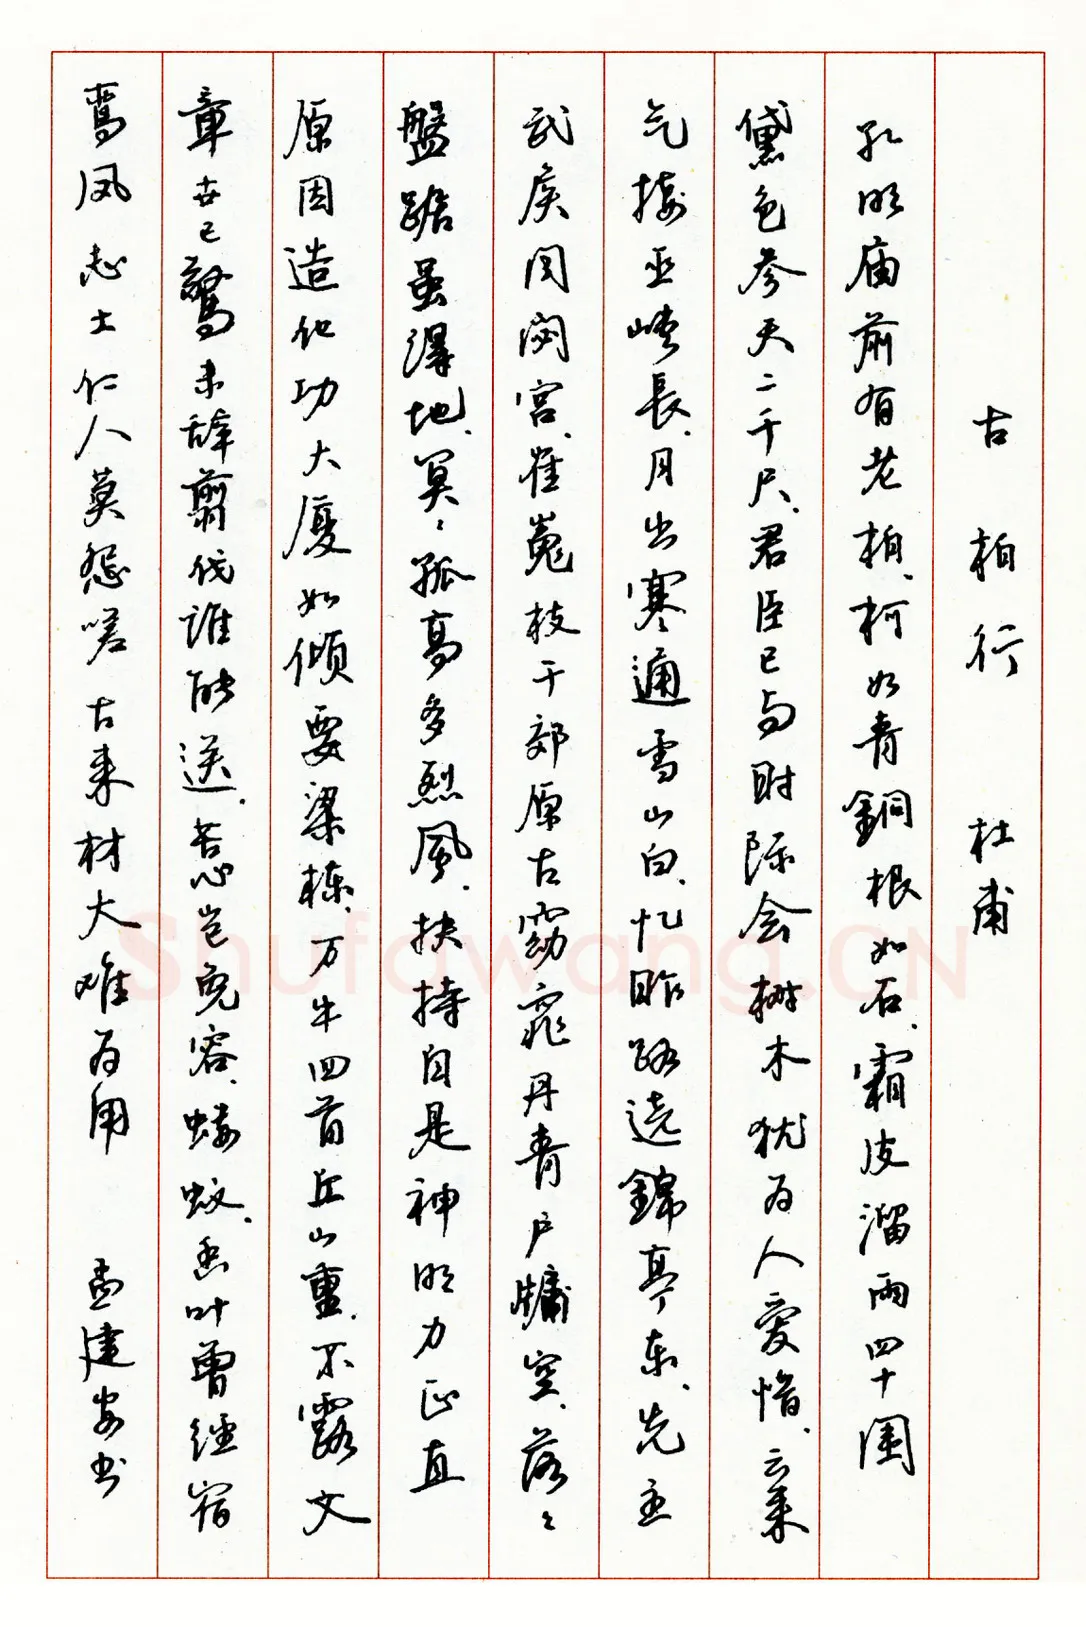 古柏行 杜甫
孔明庙前有老柏、柯如青銅根如石、霜皮溜雨四十围
黛色参天二千尺、君臣已与时际会树木犹为人爱惜、云来
气接巫峡長、月出寒通雪山白、忆昨路遶錦亭东、先主
武侯同閟宫、崔嵬枝干郊原古窈窕丹青户牖空、落々
盘踞虽得地、冥々孤高多烈風、扶持自是神明力正直
原因造化功大厦如倾要梁栋、万牛回首丘山重、不露文
章世已驚未辞翦伐谁能送、苦心岂免容螻蚁、香叶曾经宿
鸾凤志士仁人莫怨嗟古来材大难为用 孟建安书
Shufawang.CN